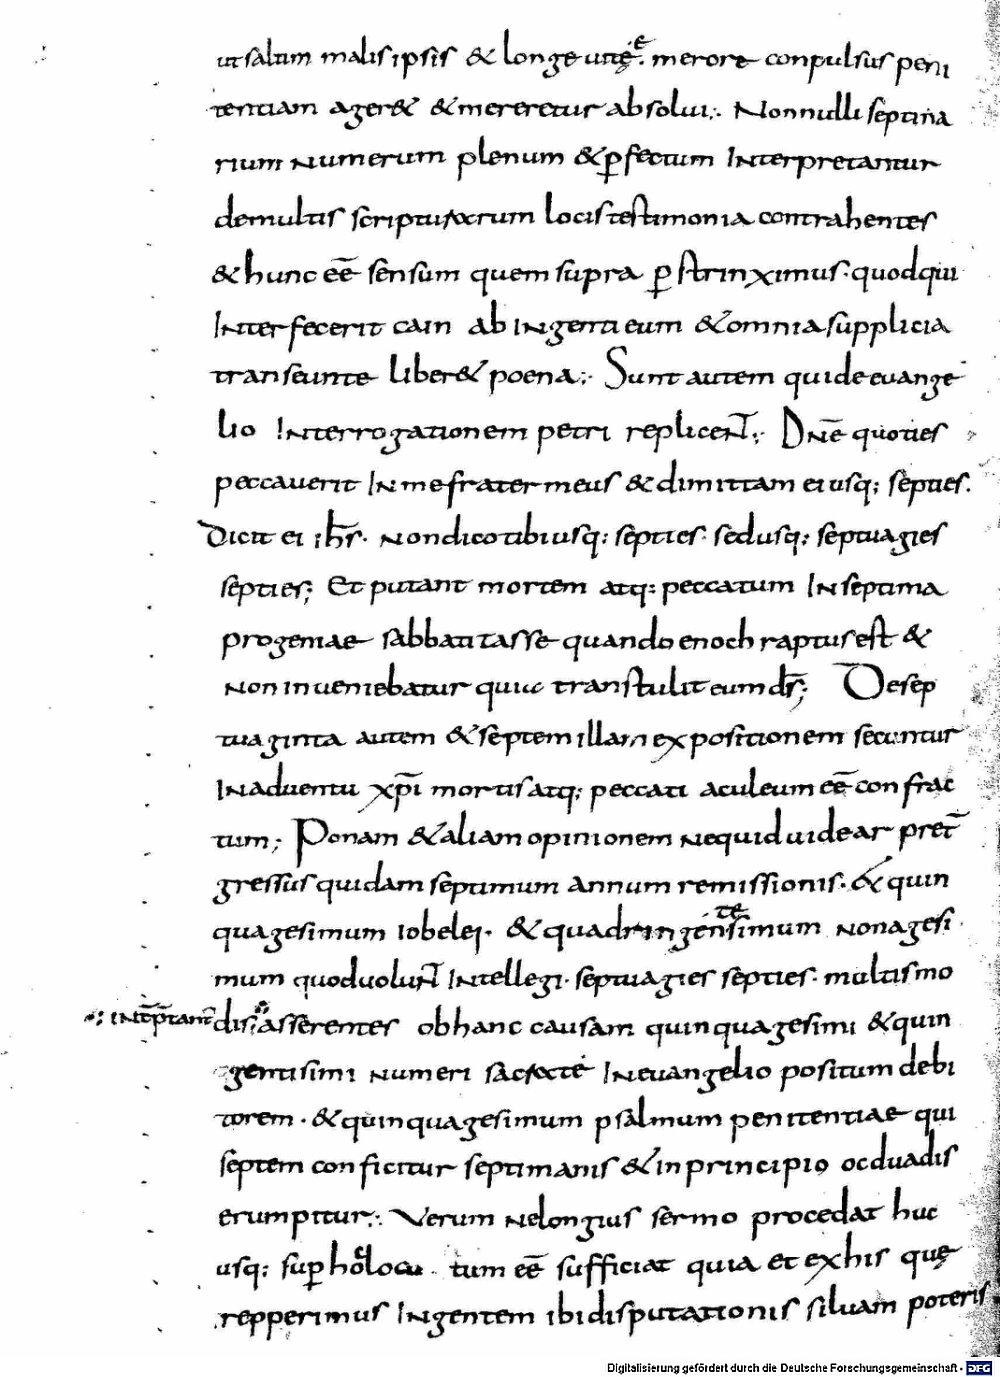 ut saltim malis ipsis & longeuitę merore conpulsus peni
tentiam ager& & mereretur absolui;. Nonnulli septina
rium numerum plenum & ꝑfectum Interpretantur
demultis scripturarum locis testimonia contrahentes
& hunc eē sensum quem supra ꝑstrinximus. quodqui
Interfecerit cain ab Ingenti eum & omnia supplicia
transeunte liber& poena;. Sunt autem qui de euange
lio Interrogationem petri replicenT̄;. Dn̄e quoties
peccauerit In me frater meus & dimittam ei usq; septies.
Dicit ei ih̄s. non dico tibi usq; septies. sed usq; septuagies
septies; Et putant mortem atq; peccatum In septima
progeniae sabbatitasse quando enoch raptus est &
non inueniebatur quia transtulit eum dr̄s; De sep
tuaginta autem & septem illam expositionem secuntur
In aduentu xp̄i mortis atq; peccati aculeum eē confrac
tum; Ponam & aliam opinionem nequid uidear pret̄
gressus quidam septimum annum remissionis. & quin
quagesimum iobelei. & quadringentesimum nonagesi
mum quod uolunT̄ Intellegi. septuagies septies. multis mo
.; int̄p̄tant̄ dis; asserentes ob hanc causam quinquagesimi & quin
gentisimi numeri sacrate In euangelio positum debi
torem. & quinquagesimum psalmum penitentiae qui
septem conficitur septimanis & in principio ocduadis
erumpitur;. Verum ne longius sermo procedat huc
usq; suꝑ hoc loco tum eē sufficiat quia et ex his quę
repperimus Ingentem ibi disputationis siluam poteris
Digitalisierung gefördert durch die Deutsche Forschungsgemeinschaft - DFG